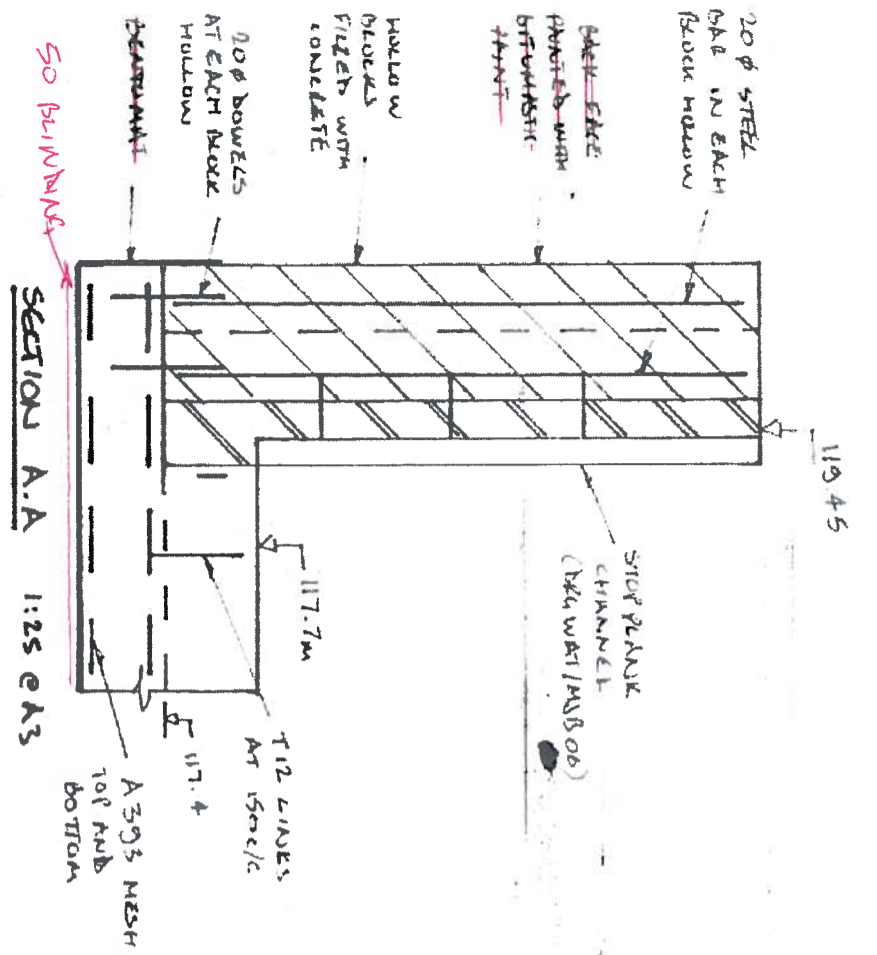 20 ø STEEL
BAR IN EACH
BLOCK HOLLOW
BACK FACE
PAINTED WITH
BITUMASTIC
PAINT
HOLLOW
BLOCKS
FILLED WITH
CONCRETE
20 ø DOWELS
AT EACH BLOCK
HOLLOW
BENTOMAT
50 BLINDING
119.45
STOP PLANK
CHANNEL
(DRG WAT/MJB 06)
117.7m
T12 LINKS
AT 150 c/c
117.4
A393 MESH
TOP AND
BOTTOM
SECTION A.A 1:25 @ A3